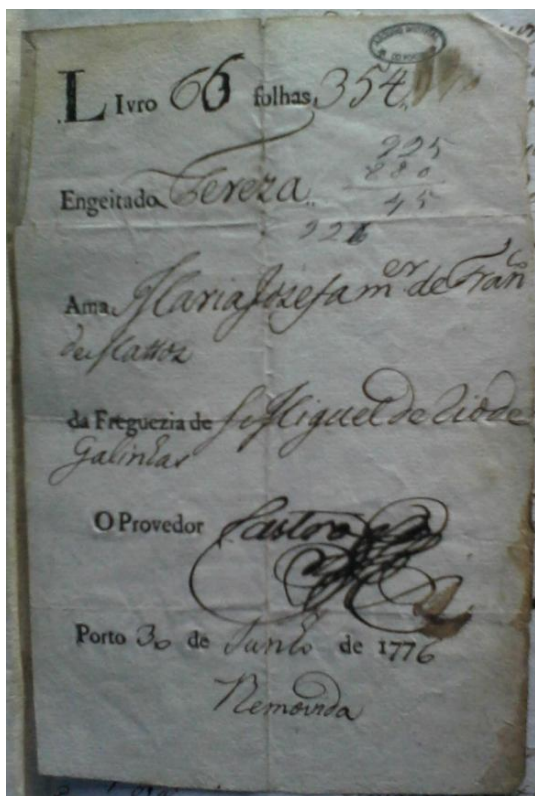 LIvro 66 folhas 354
Engeitado Tereza
225
880
45
226
Ama Maria Jozefa m.er de Fran.co
de Mattoz
da Freguezia de S. Miguel de Rio de
Galinhas
O Provedor Castro
Porto 30 de Junho de 1776
Removida